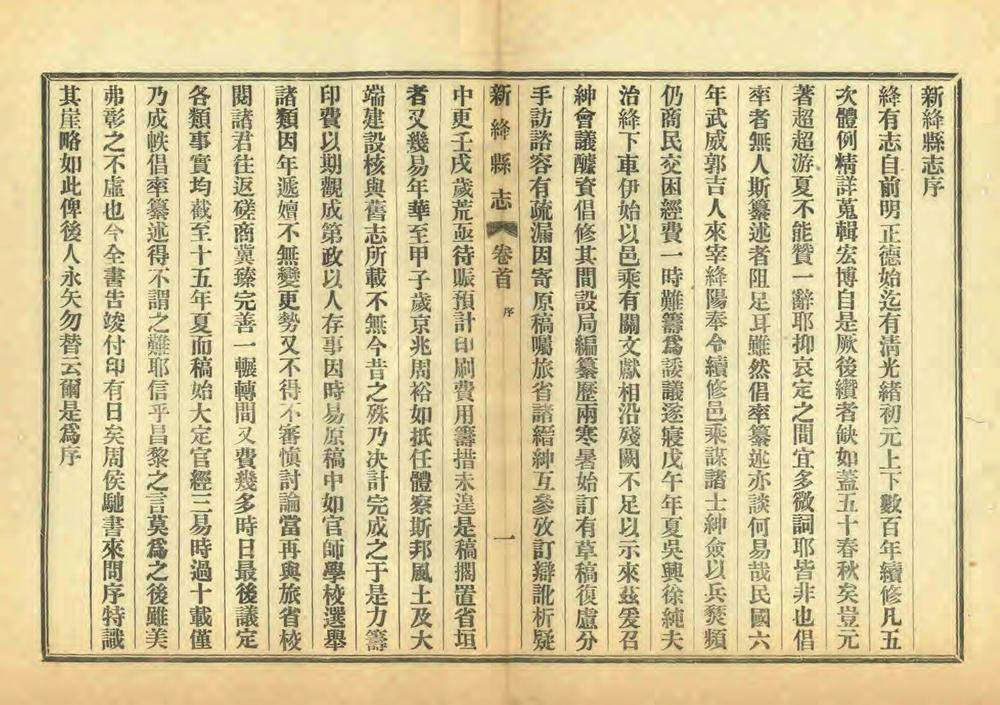 新絳縣志序
絳有志自前明正德始迄有清光緒初元上下數百年續修凡五
次體例精詳蒐輯宏博自是厥後纘者缺如蓋五十春秋矣豈元
著超超游夏不能贊一辭耶抑哀定之間宜多微詞耶皆非也倡
率者無人斯纂述者阻足耳雖然倡率纂述亦談何易哉民國六
年武威郭吉人來宰絳陽奉令續修邑乘謀諸士紳僉以兵燹頻
仍商民交困經費一時難籌爲諉議遂寢戊午年夏吳興徐純夫
治絳下車伊始以邑乘有關文獻相沿殘闕不足以示來茲爰召
紳會議醵資倡修其間設局編纂歷兩寒暑始訂有草稿復慮分
手訪諮容有疏漏因寄原稿囑旅省諸縉紳互參攷訂辯訛析疑
新絳縣志 卷首 序 一
中更壬戌歲荒亟待賑預計印刷費用籌措未遑是稿擱置省垣
者又幾易年華至甲子歲京兆周裕如抵任體察斯邦風土及大
端建設核與舊志所載不無今昔之殊乃決計完成之于是力籌
印費以期觀成第政以人存事因時易原稿中如官師學校選舉
諸類因年遞嬗不無變更勢又不得不審慎討論當再與旅省校
閱諸君往返磋商冀臻完善一輾轉間又費幾多時日最後議定
各類事實均截至十五年夏而稿始大定官經三易時過十載僅
乃成帙倡率纂述得不謂之難耶信乎昌黎之言莫爲之後雖美
弗彰之不虛也今全書告竣付印有日矣周侯馳書來問序特識
其崖略如此俾後人永矢勿替云爾是爲序